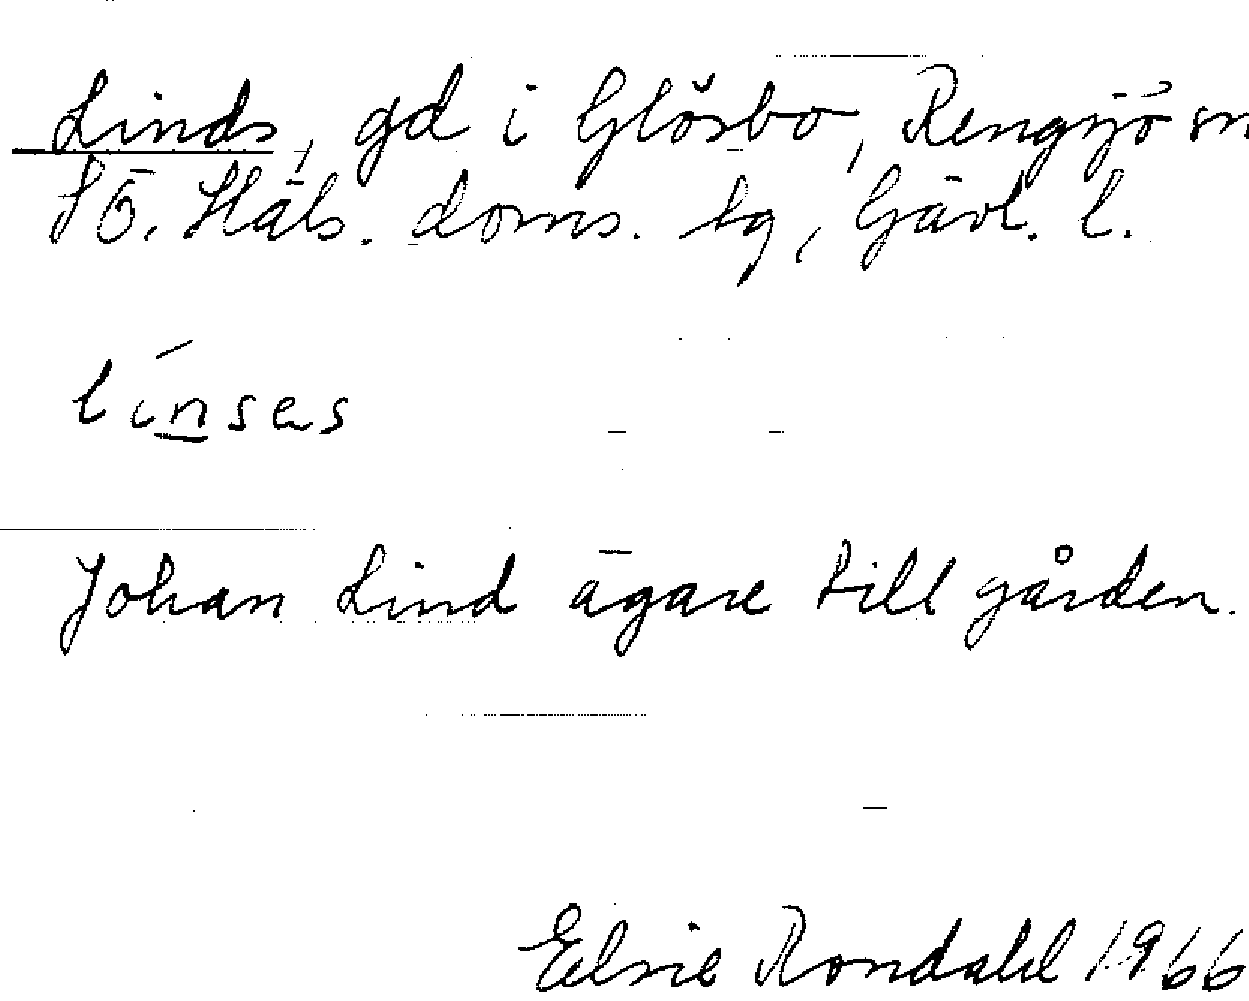 Linds, gd i Glösbo, Rengsjö sn
SÖ. Häls. doms. tg, Gävl. l.
línsas
Johan Lind ägare till gården.
Elsie Rondahl 1966